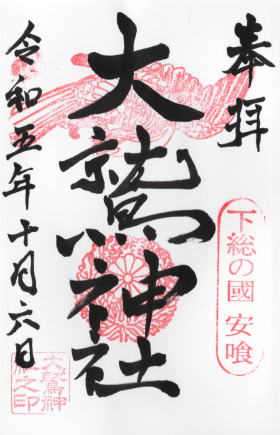 奉拝
下総の國 安喰
大鷲神社
令和五年十月六日
大鷲神
社之印